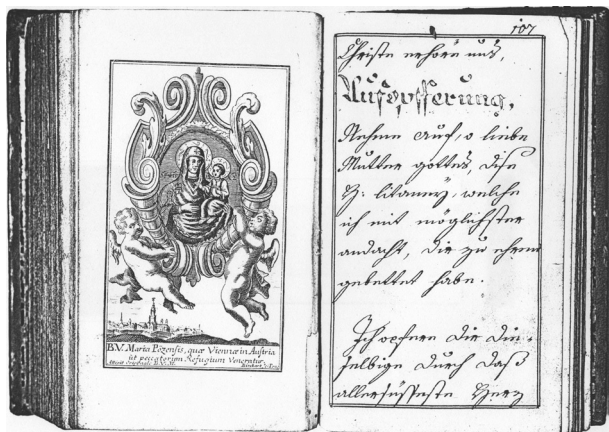 B.V. Maria Pözensis, quæ Viennæ in Austria
ut peccatorum Refugium Veneratur.
107
Christe erhöre uns,
Aufopfferung,
Nehme auf, o liebe
Mutter gottes, dise
H: litaney, welche
ich mit möglichster
andacht, dir zu ehren
gebettet habe.
Ich opfere dir die-
selbige durch daß
allersüsseste Herz